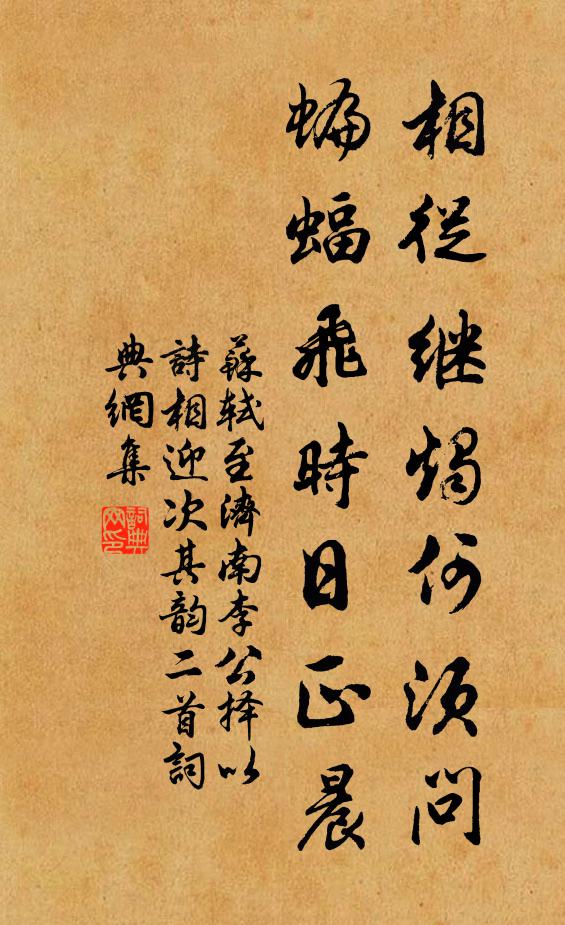 相從継燭何須問
蝙蝠飛時日正晨
蘇軾至濟南李公择以
詩相迎次其韵二首詞
典網集
詞典網印